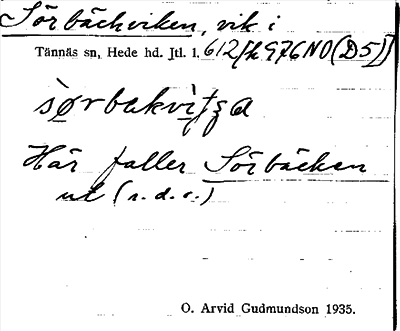 Sörbäckviken, vik i
Tännäs sn, Hede hd. Jtl. l. 612/h 976 NO (D5)
Här faller Sörbäcken
ut (s. d. o.)
O. Arvid Gudmundson 1935.